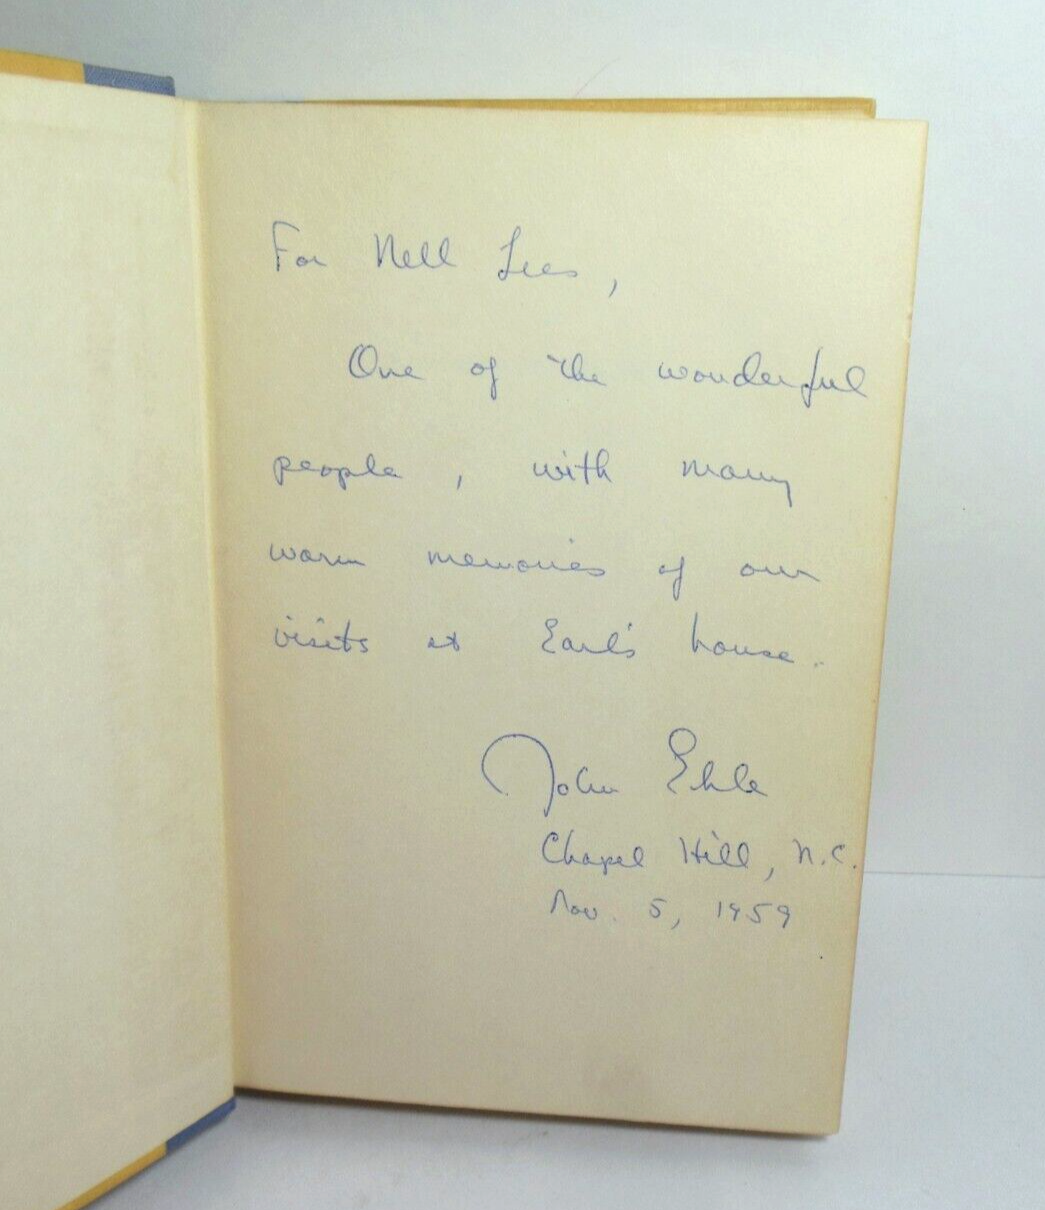 For Nell Lees,
One of the wonderful
people, with many
warm memories of our
visits at Earl's house.
John Ehle
Chapel Hill, N.C.
Nov. 5, 1959